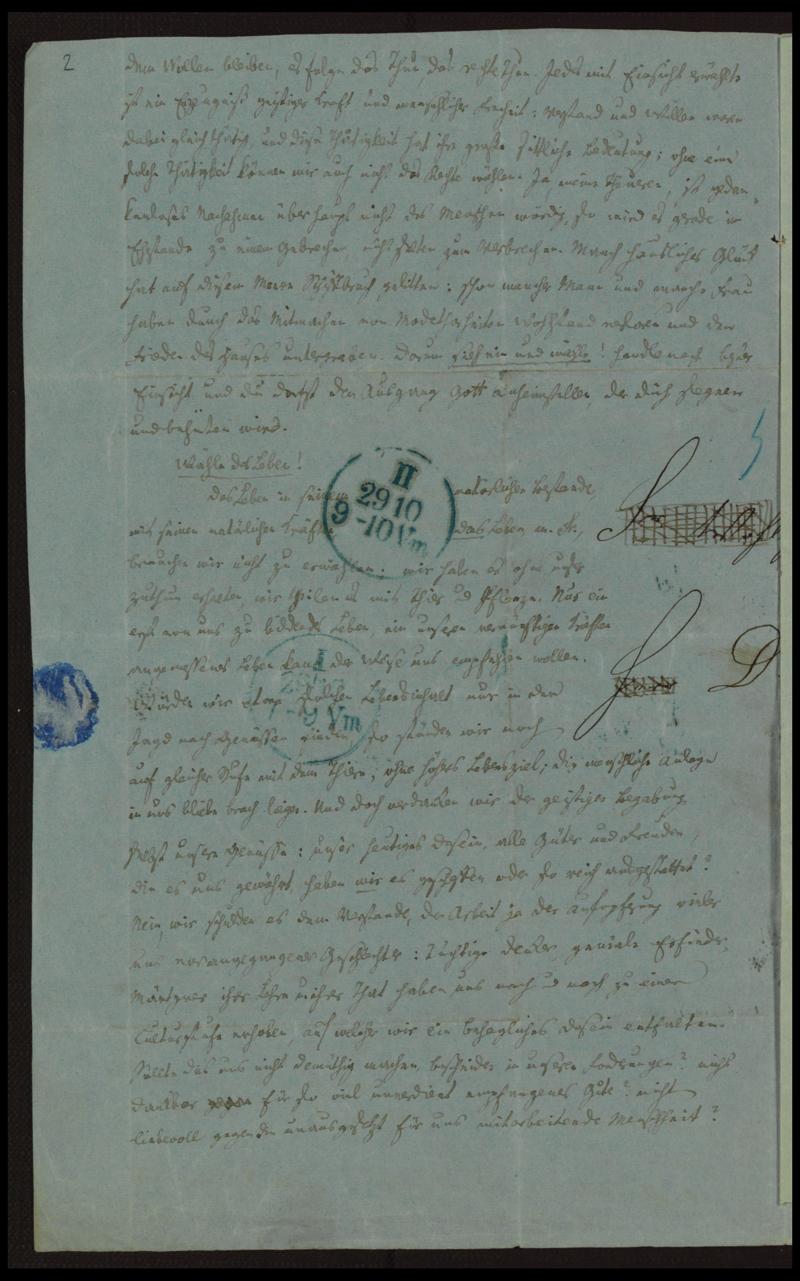 2
dem Willen bleiben, es folge das Thun, das rechte Thun. Jedes mit Einsicht erwählte
ist ein Erzeugniß geistiger Kraft und menschlicher Freiheit: Verstand und Willen waren
dabei gleich thätig, und diese Thätigkeit hat ihre große sittliche Bedeutung; ohne eine
solche Thätigkeit können wir auch nicht das Rechte wählen. Ja meine Theueren, ist gedan-
kenloses Nachahmen überhaupt nicht des Menschen würdig, so wird es gerade im
Ehestande zu einem Gebrechen, nicht selten zum Verbrechen. Manch häusliches Glück
hat auf diesem Meere Schiffbruch gelitten: schon mancher Mann und manche Frau
haben durch das Mitmachen von Modethorheiten Wohlstand verloren und den
Frieden des Hauses untergraben. Darum sieh ein und wähle! handle nach
Einsicht und du darfst den Ausgang Gott anheimstellen, der dich segnen
und behüten wird.
Wähle das Leben!
Das Leben in seinem natürlichen Bestande,
mit seinen natürlichen Kräften das Leben
brauchen wir nicht zu erwählen: wir haben es ohne unser
zuthun erhalten, wir theilen es mit Thier u Pflanze. Nur ein
erst von uns zu bildendes Leben, ein unseren vernünftigen Kräften
angemessenes Leben kann der Weise uns empfehlen wollen.
Würden wir solchen Lebensinhalt nur in der
Jagd nach Genüssen finden, so ständen wir noch
auf gleicher Stufe mit dem Thiere, ohne höheres Lebensziel; die menschliche Anlage
in uns bliebe brach liegen. Und doch verdanken wir der geistigen Begabung
selbst unsere Genüsse: unser heutiges Dasein, alle Güter und Freuden,
die es uns gewährt, haben wir es geschaffen oder so reich ausgestattet?
Nein, wir schulden es dem Verstande, der Arbeit ja der Aufopferung vieler
uns vorangegangener Geschlechter: Tüchtige Denker, geniale Erfinder,
Märtyrer ihrer Lehre haben uns nach u nach zu einer
Culturstufe erhoben, auf welcher wir ein behagliches Dasein entfalten.
Sollte das uns nicht demüthig machen, bescheiden in unseren Forderungen? nicht
dankbar für so viel unverdient empfangenes Gute? nicht
liebevoll gegen die unausgesetzt für uns mitarbeitende Menschheit?
II
29 10
9-10 Vm
I
-9 Vm